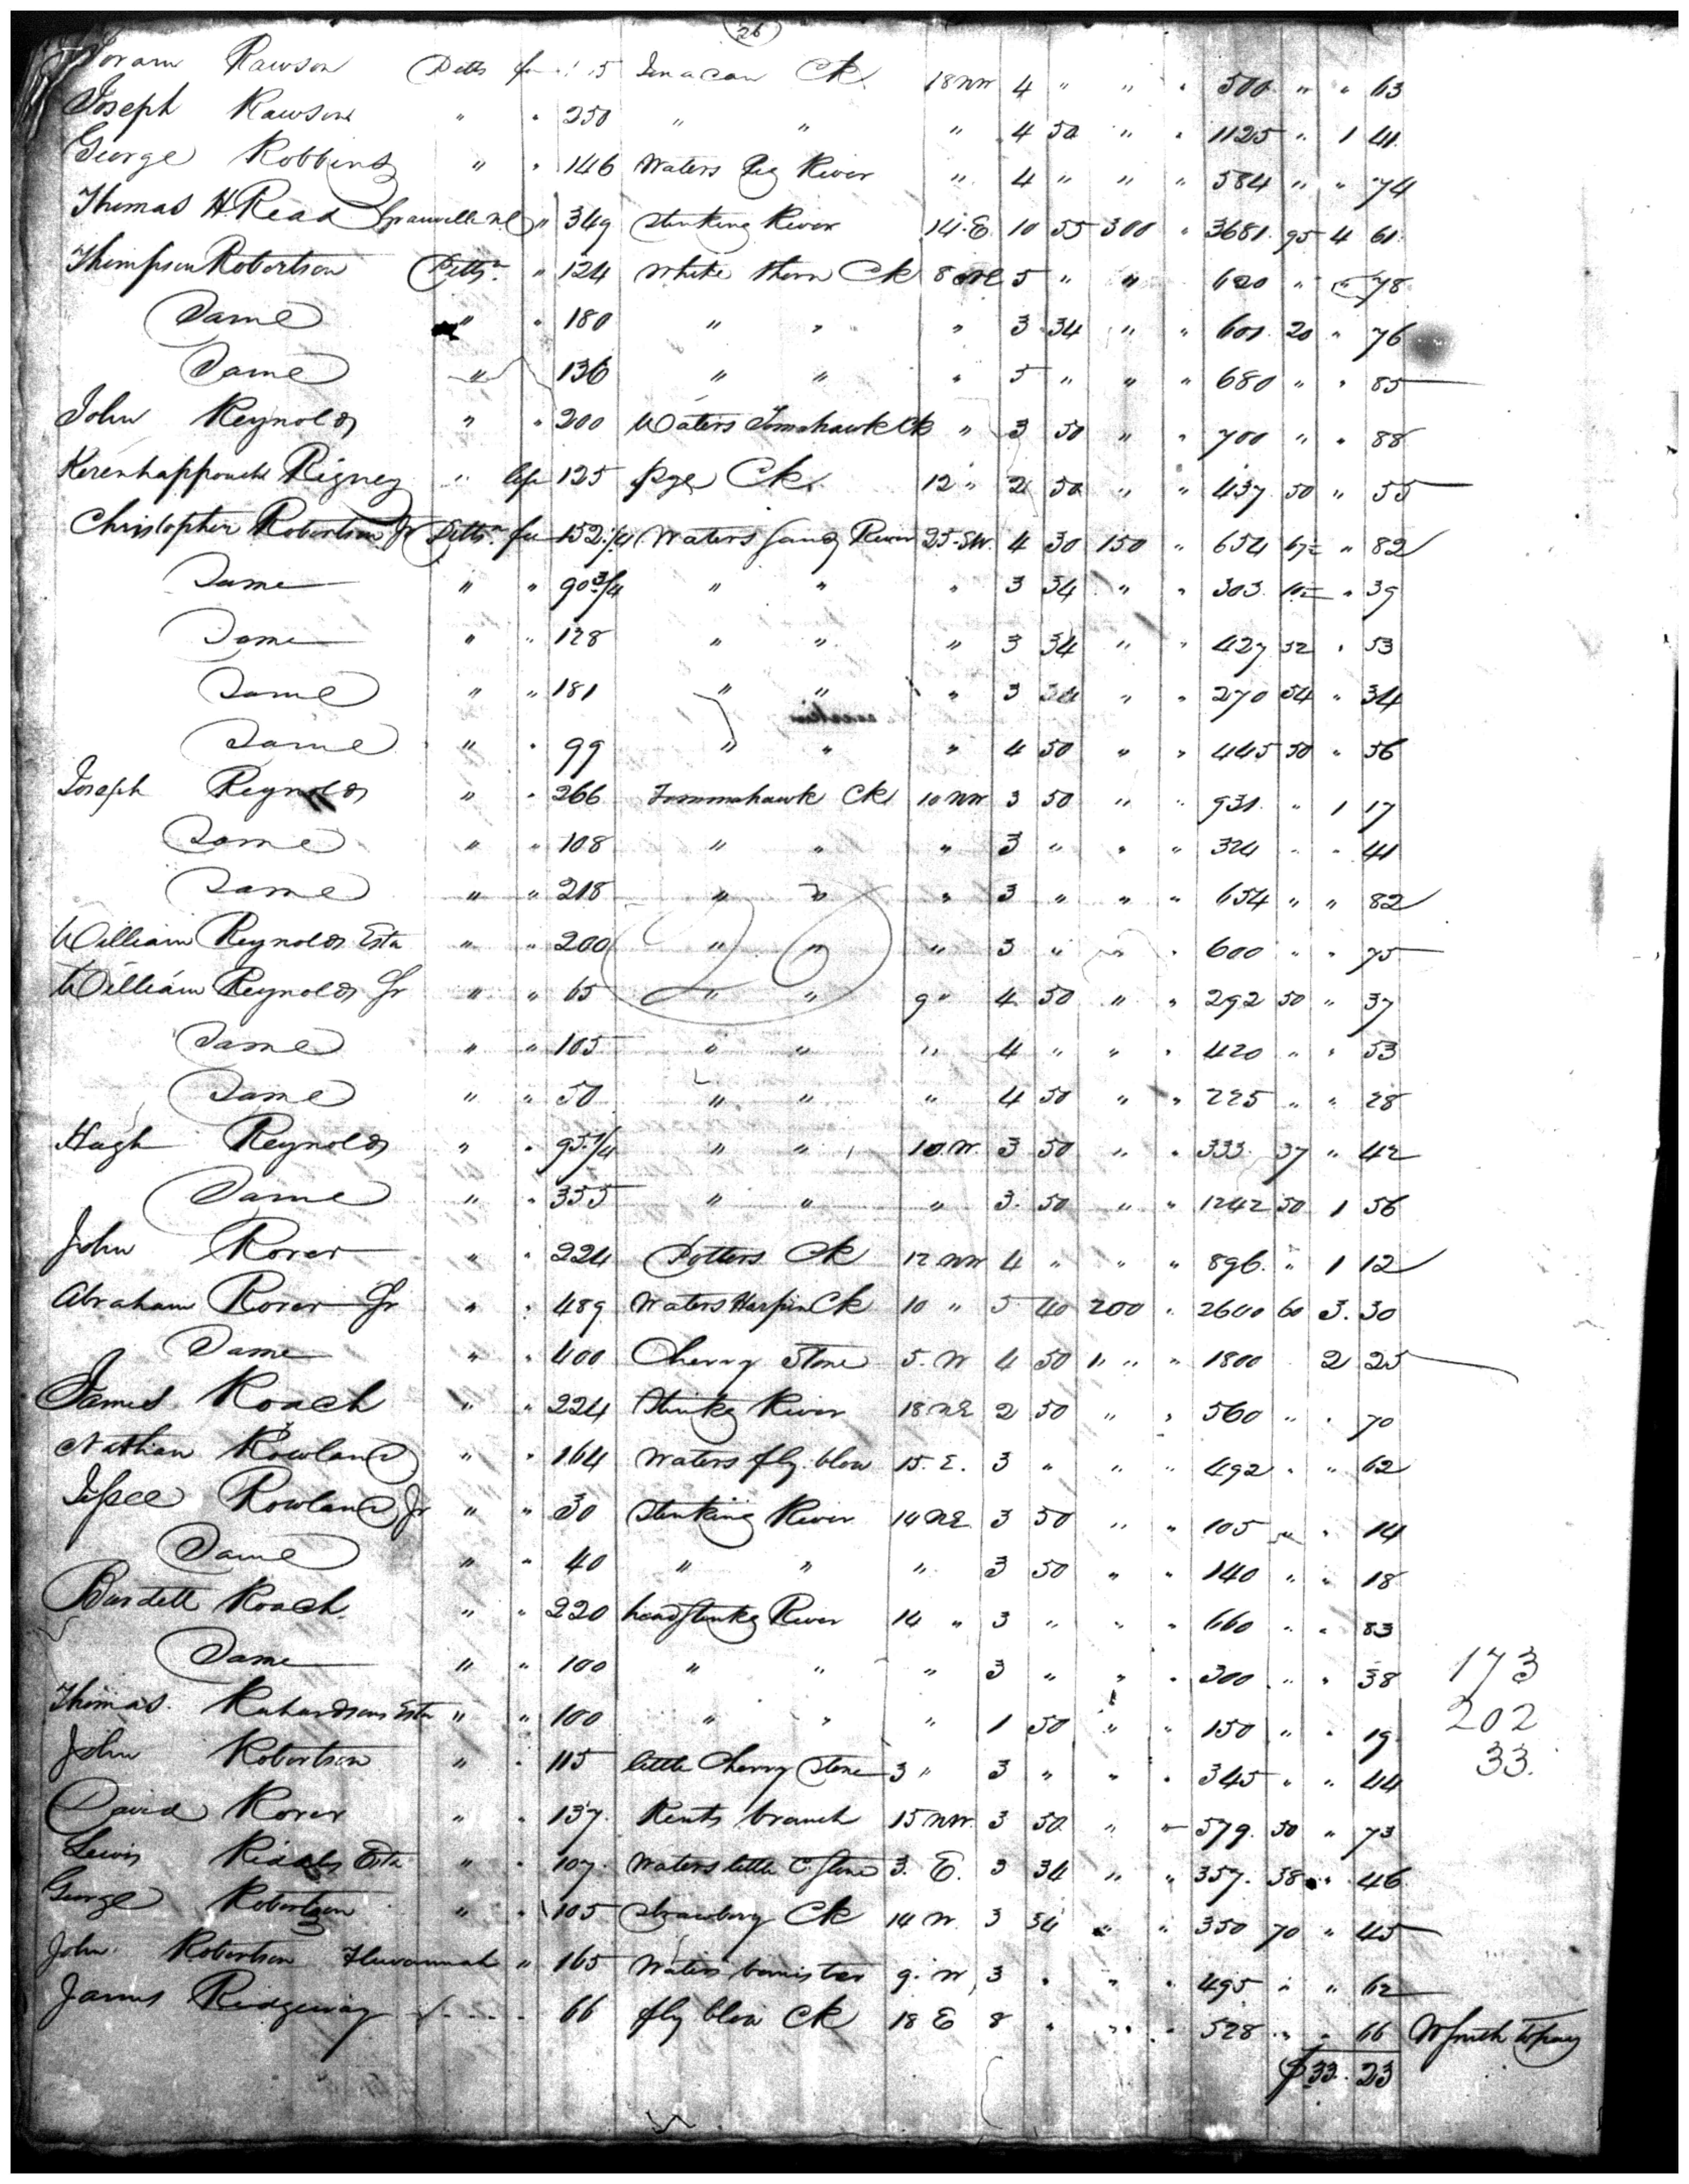 26
Rawson Pitts fee Ck 18 NW 4 " " " 500 " " 63
Joseph Rawson " " 250 " " " 4 50 " " 1125 " 1 41
George Robbins " " 146 Waters Pig River " 4 " " " 584 " " 74
Thomas H. Read Granville N C " 349 Stinking River 14 E 10 55 300 " 3681 95 4 61
Thompson Robertson Pitts " 124 White thorn Ck 8 5 " " 620 " " 78
Same " " 180 " " " 3 34 " " 601 20 " 76
Same " 136 " " " 5 " " " 680 " " 85
John Reynolds " " 200 Waters Tomahawk Ck " 3 50 " " 700 " " 88
Rigney " 125 Ck 12 " 50 " " 437 50 " 55
Christopher Robertson Jr Pitts fee 152 1/4 Waters Sandy River 25 SW 4 30 150 " 654 67 " 82
Same " " 90 3/4 " " " 3 34 " " 303 10 " 39
Same " " 128 " " " 3 34 " " 427 52 " 53
Same " " 181 " " " 3 " " 270 54 " 34
Same " " 99 " " " 4 50 " " 445 50 " 56
Joseph Reynolds " " 266 Tommahawk Ck 10 NW 3 50 " " 931 " 1 17
Same " " 108 " " " 3 " " " 324 " " 41
Same " " 218 " " " 3 " " " 654 " " 82
William Reynolds Esta " " 200 " " " 3 " " " 600 " " 75
William Reynolds Jr " " 65 " " 9 " 4 50 " " 292 50 " 37
Same " " 105 " " " 4 " " " 420 " " 53
Same " " 50 " " " 4 50 " " 225 " " 28
26
Hugh Reynolds " " 95 1/4 " " 10 W 3 50 " " 333 37 " 42
Same " " 355 " " " 3 50 " " 1242 50 1 56
John Rorer " " 224 Potters Ck 12 NW 4 " " " 896 " 1 12
Abraham Rorer Jr " " 489 Waters Harpin Ck 10 " 5 40 200 " 2640 60 3 30
Same " " 400 Cherry Stone 5 W 4 50 " " " 1800 2 25
James Roach " " 224 Stinkg River 18 NE 2 50 " " 560 " " 70
Nathan Rowland " " 164 Waters fly blow 15 E 3 " " " 492 " " 62
Jessee Rowland Jr " " 30 Stinking River 14 NE 3 50 " " 105 " " 14
Same " " 40 " " " 3 50 " " 140 " " 18
Burdett Roach " " 220 head Stinkg River 14 " 3 " " " 660 " " 83
Same " " 100 " " " 3 " " " 300 " " 38
173
Thomas Richardsons Esta " " 100 " " " 1 50 " " 150 " " 19
202
John Robertson " " 115 little Cherry Stone 3 " 3 " " " 345 " " 44
33
David Rorer " " 137 Rents branch 15 NW 3 50 " " 579 50 " 73
Lewis Esta " " 107 Waters little C. Stone 3 E 3 34 " " 357 38 " 46
George Robertson " " 105 Strawberry Ck 14 W 3 34 " " 350 70 " 45
John Robertson Fluvannah " 165 Waters bannister 9 W 3 " " " 495 " " 62
James Ridgeway 66 fly blow Ck 18 E 8 " " " 528 " " 66 W Smith to pay
$33.23